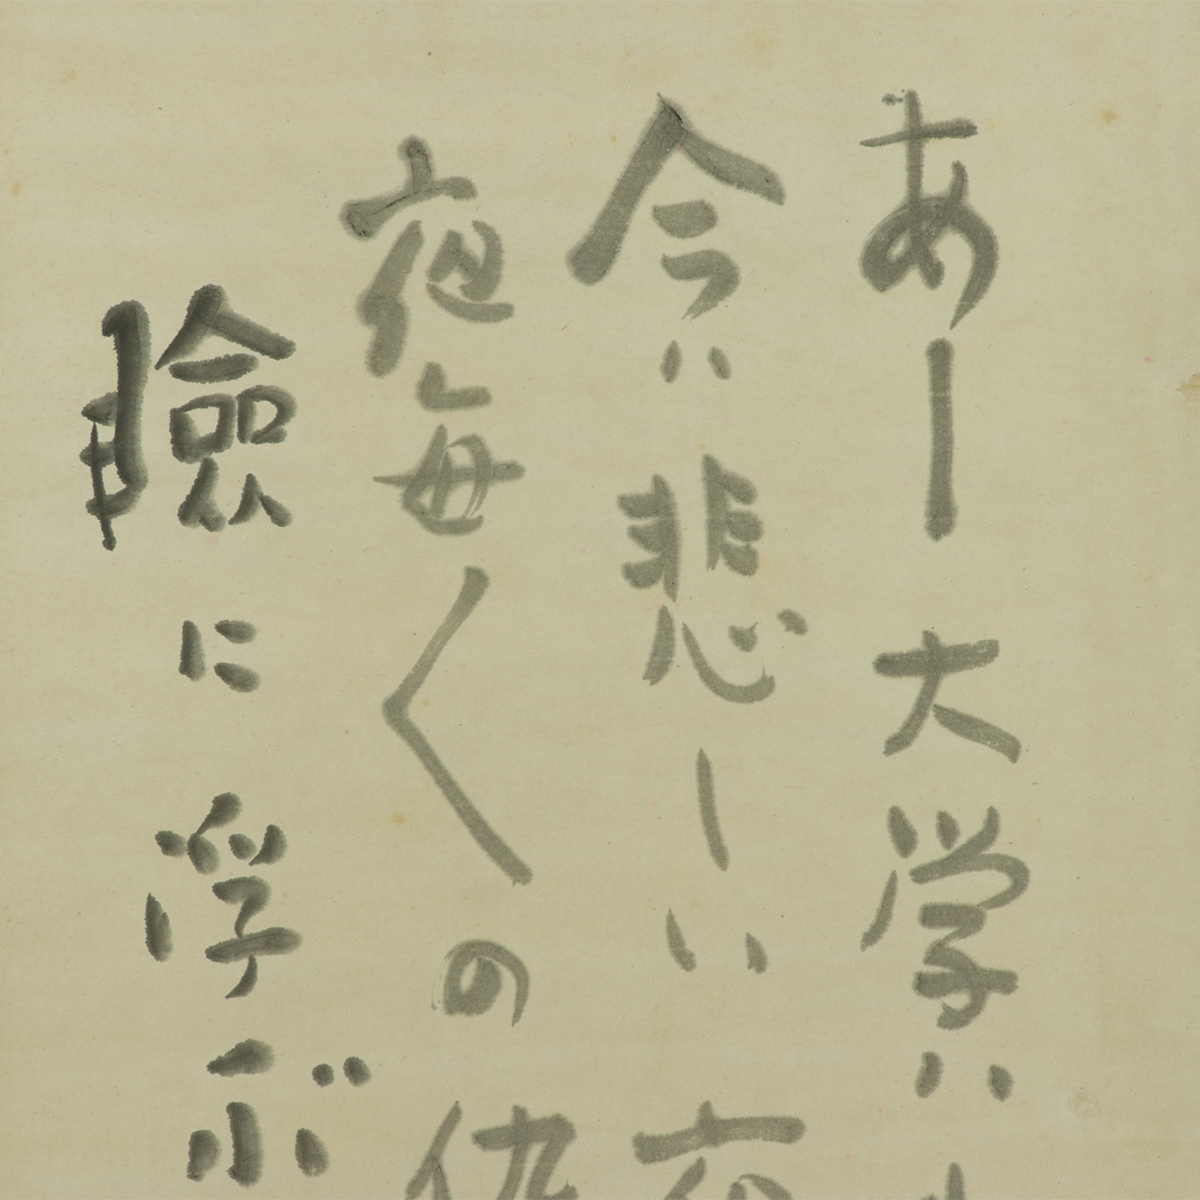 あー大学ハ
今ハ悲しい
夜毎〱の
瞼に浮ぶ